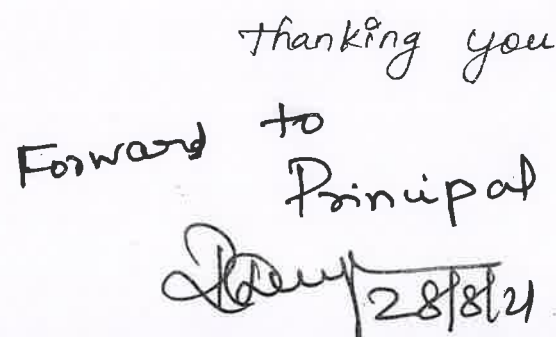 Thanking you
Forward to
Principal
28/8/21